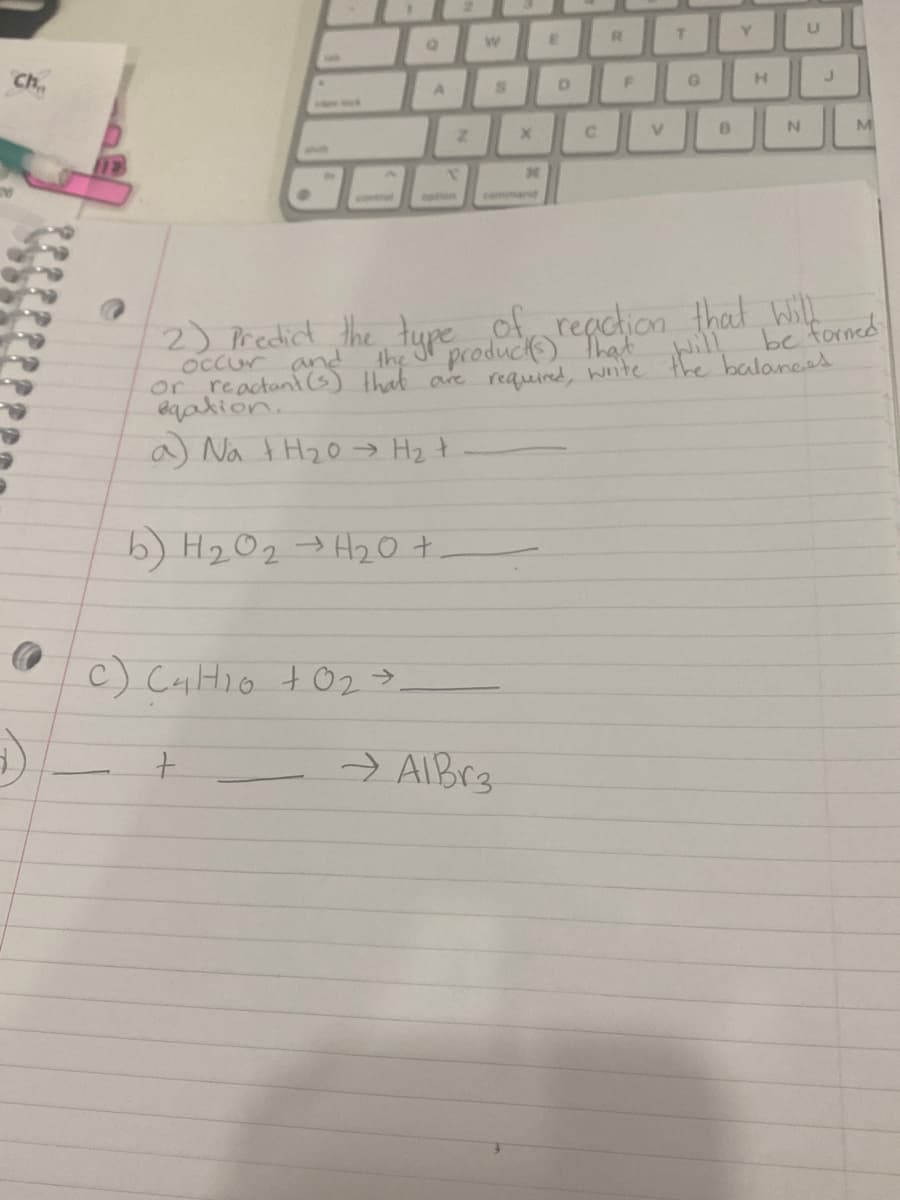 Q W E R T Y U
A S D F G H J
Z X C V B N M
control option command
Ch
2) Predict the type of reaction that will
occur and the product(s) that will be formed
or reactant(s) that are required, write the balanced
eqation.
a) Na + H2O → H2 + ___
b) H2O2 → H2O + ___
c) C4H10 + O2 → ___
___ + ___ → AlBr3